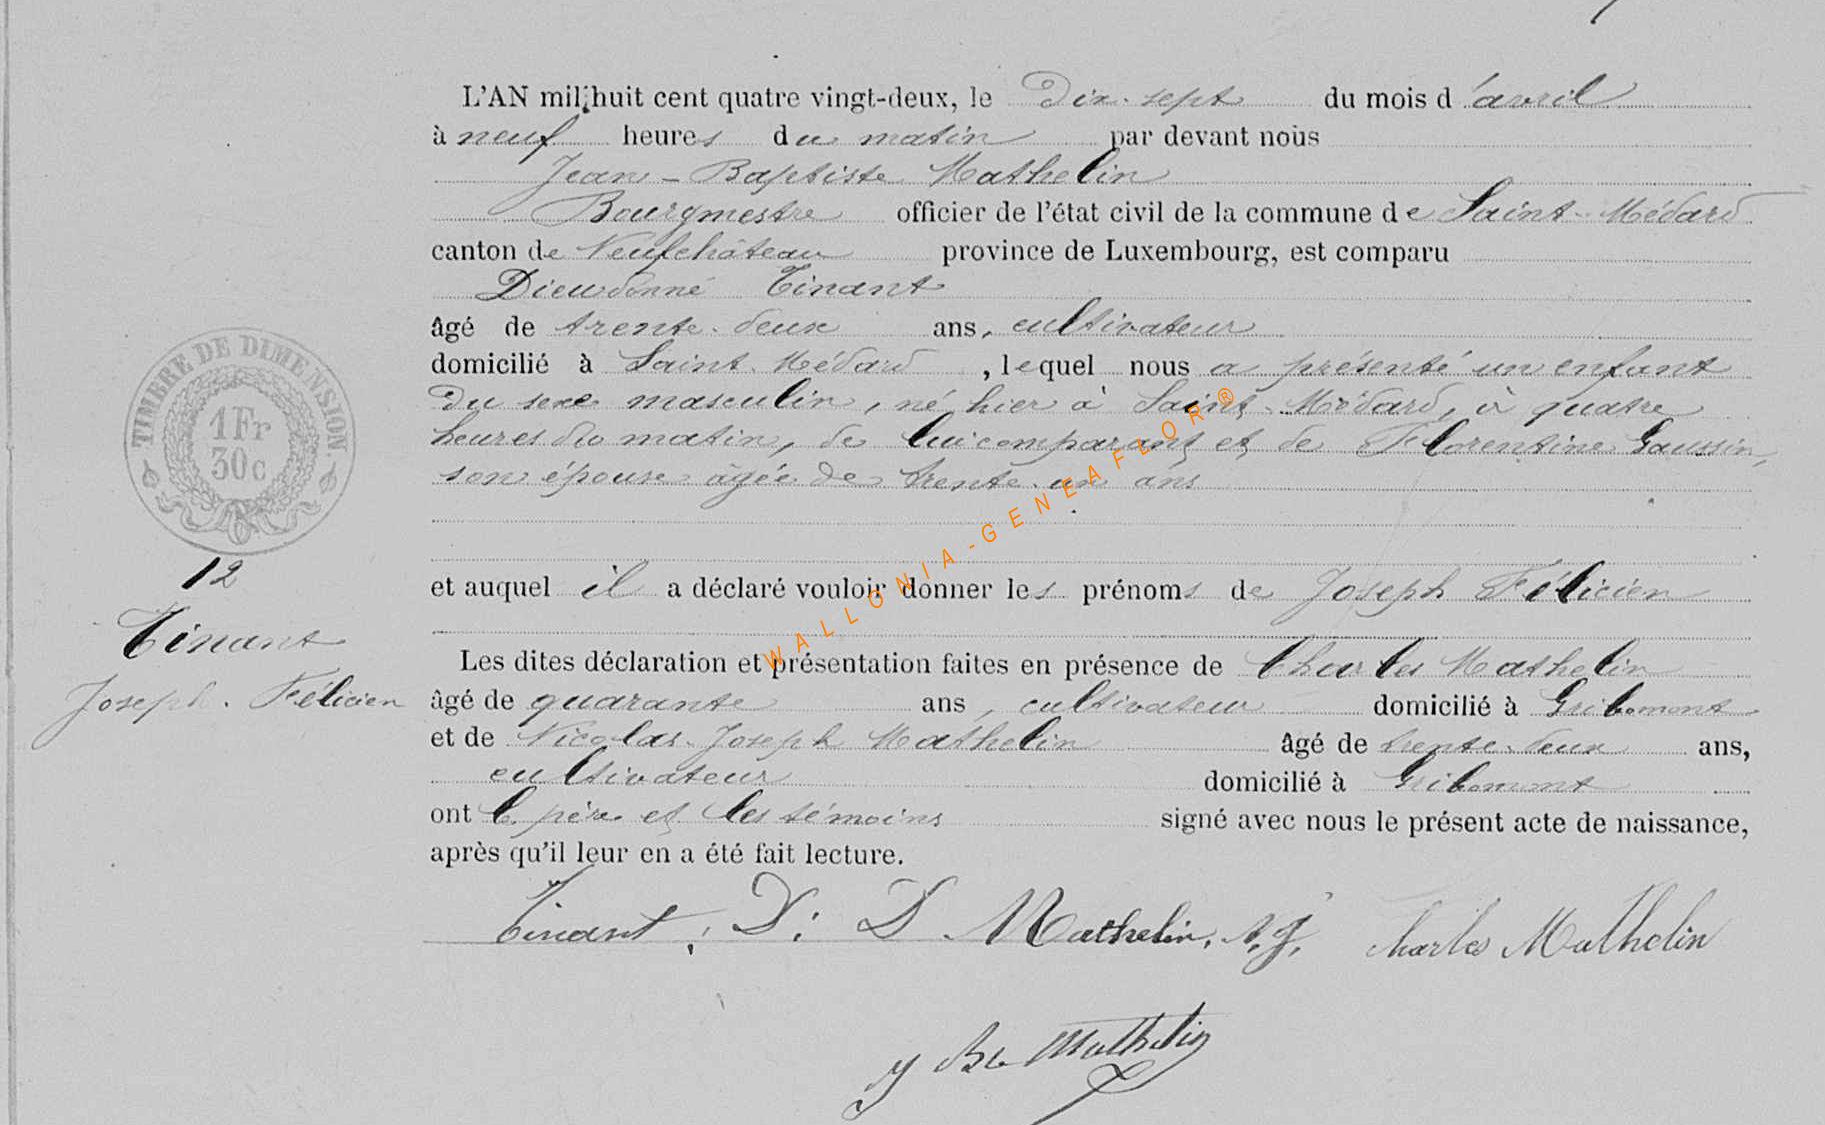 L'AN mil huit cent quatre vingt-deux, le Dix-sept du mois d'avril
à neuf heures du matin par devant nous
Jean-Baptiste Mathelin
Bourgmestre officier de l'état civil de la commune de Saint-Médard
canton de Neufchâteau province de Luxembourg, est comparu
Dieudonné Tinant
âgé de trente-deux ans, cultivateur
domicilié à Saint-Médard, lequel nous a présenté un enfant
du sexe masculin, né hier à Saint-Médard, à quatre
heures du matin, de lui comparant et de Florentine Gaussin,
son épouse âgée de trente-un ans
et auquel il a déclaré vouloir donner les prénoms de Joseph Félicien
Les dites déclaration et présentation faites en présence de Charles Mathelin
âgé de quarante ans, cultivateur domicilié à Gribomont
et de Nicolas-Joseph Mathelin âgé de trente-deux ans,
cultivateur domicilié à Gribomont
ont le père et les témoins signé avec nous le présent acte de naissance,
après qu'il leur en a été fait lecture.
Tinant, D: D Mathelin, N.J. Charles Mathelin
J Bte Mathelin
TIMBRE DE DIMENSION.
1 Fr
30 c
12
Tinant
Joseph. Félicien
WALLONIA-GENEAFLOR®